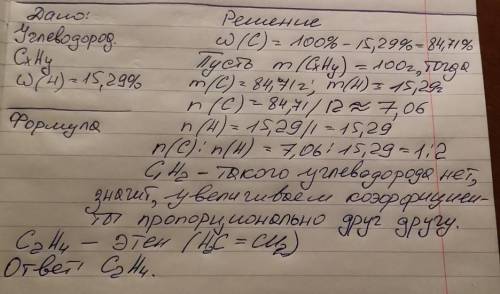 Дано:
Решение
Углеводород.
CxHy
ω(H) = 15,29%
Формула
ω(C) = 100% - 15,29% = 84,71%
Пусть m(CxHy) = 100г, тогда
m(C) = 84,71г; m(H) = 15,29г
n(C) = 84,71/12 ≈ 7,06
n(H) = 15,29/1 = 15,29
n(C) : n(H) = 7,06 : 15,29 = 1:2
CH₂ - такого углеводорода нет,
значит, увеличиваем коэффициен-
ты пропорционально друг другу.
C₂H₄ - этен (H₂C = CH₂)
Ответ: C₂H₄.